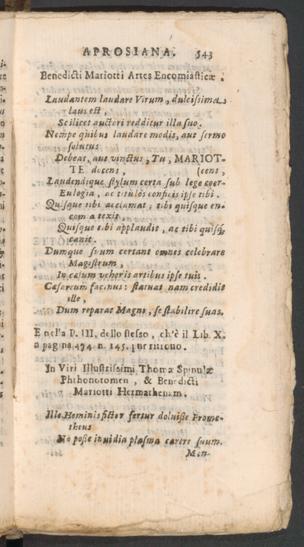 APROSIANA. 543
Benedicti Mariotti Artes Encomiasticæ.
Laudantem laudare Virum, dulcissima
laus est,
Scilicet auctori redditur illa suo.
Nempe quibus laudare modis, aut sermo
solutus
Debeat, aut vinctus, Tu, MARIOT-
TE doces, (cens,
Laudandique stylum certa sub lege coer-
Eulogia, ac titulos conficis ipse tibi.
Quisque tibi acclamat, tibi quisque en-
com a texit,
Quisque tibi applaudit, ac tibi quisq;
canit.
Dumque suum certant omnes celebrare
Magistrum,
In cælum veheris artibus ipse tuis.
Cæsareum facinus: statuas nam credidit
ille,
Dum reparat Magni, se stabilire suas.
E nella P. III. dello stesso, ch'è il Lib. X.
a pagine 474. n. 145. pur ritrouo.
In Viri Illustrissimi Thomæ Spinulæ
Phthonotomen, & Benedicti
Mariotti Hermathenam.
Ille Hominis fictor fertur doluisse Prome-
theus
No posse inuidia plasma carere suum.
Men-